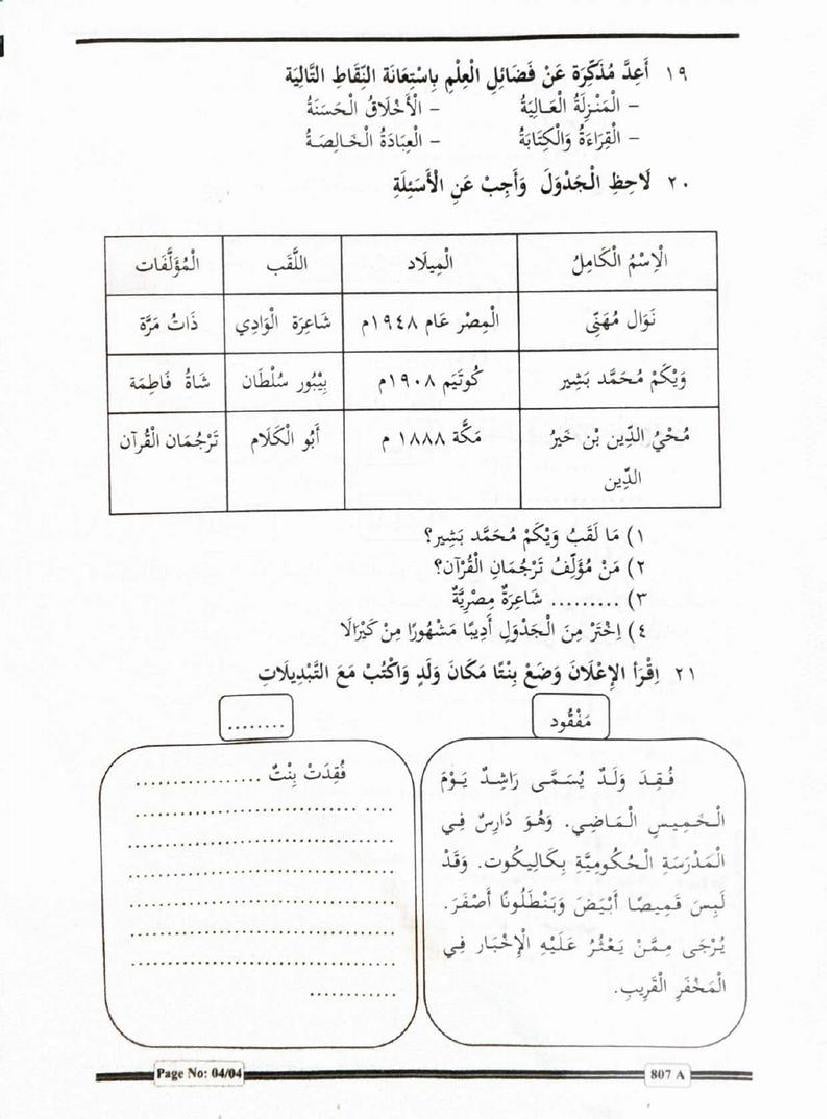 ١٩ أَعِدَّ مُذَكِّرَة عَنْ فَضَائِلِ الْعِلْمِ بِاسْتِعَانَة النِّقَاطِ التَّالِيَة
– الْمَنْزِلَةُ الْعَالِيَةُ – الْأَخْلَاقُ الْحَسَنَةُ
– الْقِرَاءَةُ وَالْكِتَابَةُ – الْعِبَادَةُ الْخَالِصَةُ
٢٠ لَاحِظِ الْجَدْوَلَ وَأَجِبْ عَنِ الْأَسَئِلَةِ
الْاِسْمُ الْكَامِلُ الْمِيلَاد اللَّقَب الْمُؤَلَّفَات
نَوَال مُهَنَّى الْمِصْر عَام ١٩٤٨م شَاعِرَة الْوَادِي ذَاتُ مَرَّة
وَيْكَمْ مُحَمَّد بَشِير كُوتَيَم ١٩٠٨م بِيْبُور سُلْطَان شَاةُ فَاطِمَة
مُحْيُ الدِّين بْن خَيرُ مَكَّة ١٨٨٨ م أَبُو الْكَلَام تَرْجُمَان الْقُرْآن
الدِّين
١) مَا لَقَبُ وَيْكَمْ مُحَمَّد بَشِير؟
٢) مَنْ مُؤَلِّفُ تَرْجُمَانِ الْقُرْآن؟
٣) ......... شَاعِرَةٌ مِصْرِيَّةٌ
٤) اِخْتَرْ مِنَ الْجَدْوَلِ أَدِيبًا مَشْهُورًا مِنْ كَيْرَالَا
٢١ اِقْرَأ الإِعْلَانَ وَضَعْ بِنْتًا مَكَانَ وَلَدٍ وَاكْتُبْ مَعَ التَّبْدِيلَاتِ
مَفْقُود
فُقِدَ وَلَدٌ يُسَمَّى رَاشِدٌ يَوْمَ
الْخَمِيسِ الْمَاضِي. وَهُوَ دَارِسٌ فِي
الْمَدْرَسَةِ الْحُكُومِيَّةِ بِكَالِيكُوت. وَقَدْ
لَبِسَ قَمِيصًا أَبْيَضَ وَبَنْطَلُونًا أَصْفَرَ.
يُرْجَى مِمَّنْ يَعْثُرُ عَلَيْهِ الْإِخْبَار فِي
الْمَخْفَرِ الْقَرِيبِ.
........
فُقِدَتْ بِنْتٌ ................
Page No: 04/04 807 A